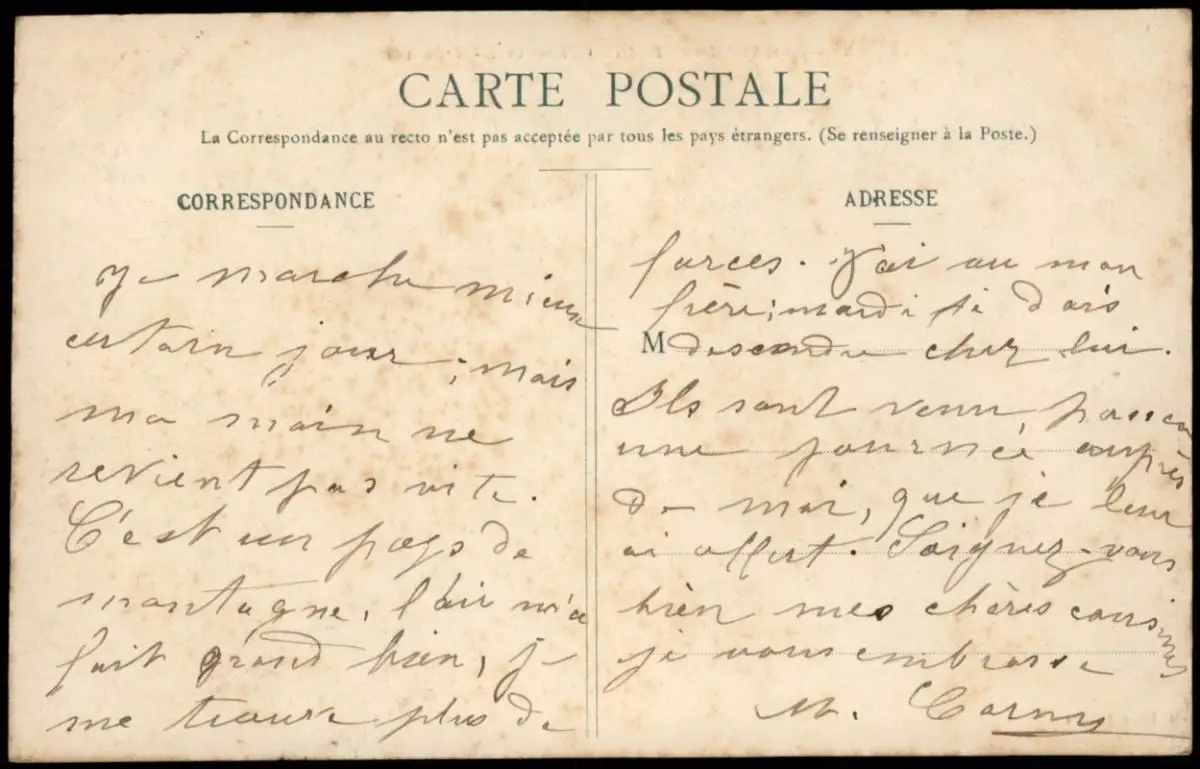 CARTE POSTALE
La Correspondance au recto n'est pas acceptée par tous les pays étrangers. (Se renseigner à la Poste.)
CORRESPONDANCE
Je marche mieux
certain jour ; mais
ma main ne
revient pas vite.
C'est un pays de
montagne, l'air m'a
fait grand bien, je
me trouve plus de
ADRESSE
forces. J'ai vu mon
frère ; mardi je dois
M descendre chez lui.
Ils sont venu passer
une journée auprès
de moi, que je leur
ai offert. Soignez-vous
bien mes chères cousines
je vous embrasse
M.